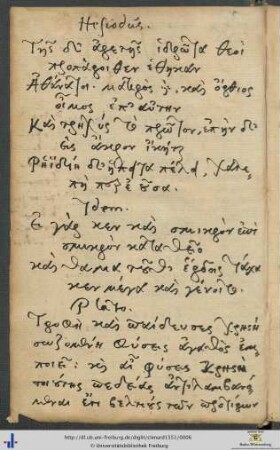 Hesiodus.
Τῆς δ' ἀρετῆς ἱδρῶτα θεοὶ
προπάροιθεν ἔθηκαν
Ἀθάνατοι. μακρὸς καὶ ὄρθιος
οἶμος ἐπ' αὐτὴν
Καὶ τρηχὺς τὸ πρῶτον, ἐπὴν δ'
εἰς ἄκρον ἵκηται
Ῥηϊδίη δ' ἤπειτα πέλει, χαλε-
πή περ ἐοῦσα.
Idem.
Εἰ γάρ κεν καὶ σμικρὸν ἐπὶ
σμικρῷ καταθεῖο
καὶ θαμα τοῦθ' ἔρδοις τάχα
κεν μέγα καὶ γένοιτο.
Plato.
Τροφὴ καὶ παίδευσις χρηστὴ
σωζομένη φύσεις ἀγαθὰς ἐμ-
ποιεῖ: καὶ αὖ φύσεις χρησταὶ
τοιαύτης παιδείας ἀντιλαμβανό-
μεναι ἔτι βελτίους τῶν προτέρων
http://dl.ub.uni-freiburg.de/diglit/
© Universitätsbibliothek Freiburg